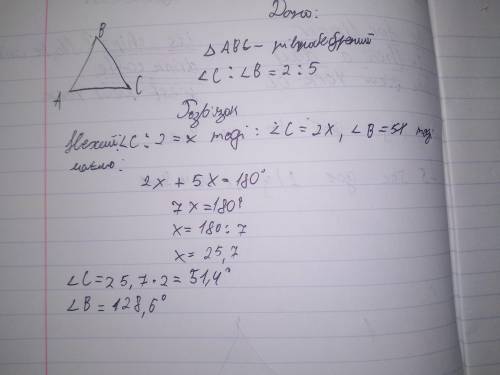 Дано:
B
△ABC - рівнобедрений
∠C : ∠B = 2 : 5
A
C
Розв'язок
Нехай ∠C : 2 = x тоді : ∠C = 2x, ∠B = 5x тоді
маємо:
2x + 5x = 180°
7x = 180°
x = 180 : 7
x = 25,7
∠C = 25,7 · 2 = 51,4°
∠B = 128,6°